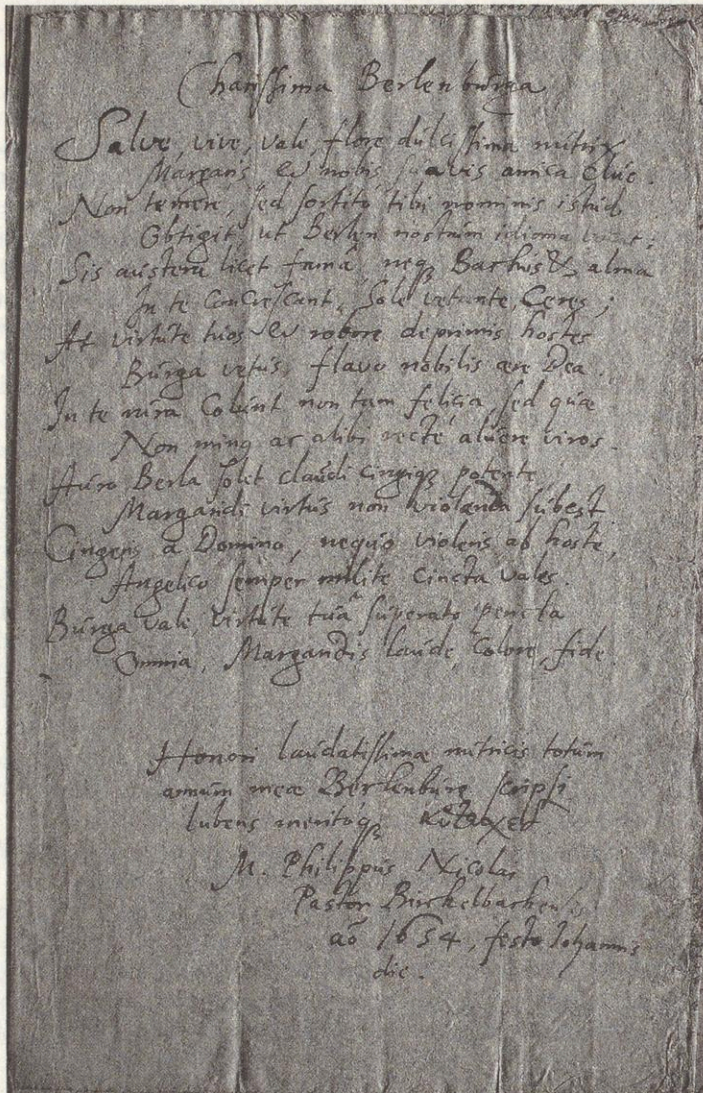 Charissima Berlenburga
Salve, vive, vale, flore dulcissima nutrix
Margaris et nobis suavis amica Clüe.
Non temere, sed sortitò tibi nominis istud
Obtigit, ut Berlen nostrum idioma
Sis austera licet fama, neq; Bachus & alma
In te concrescant, Sole vetante, Ceres;
At virtute tuos et robore deprimis hostes
Burga vetus, flavo nobilis aere Dea.
In te rura Colunt non tam felicia sed quae
Non minq ac alibi recté aluere viros.
Auro Berla solet claudi cingiq; potente,
Margaridi virtus non violanda subest.
Cingeris a Domino, nequio violens ab hoste,
Angelico semper milite cincta vales.
Burga vale, virtute tuâ superato pericla
Omnia, Margaridis laude, Colore, fide.
Honori laudatissimae nutricis totum
annum meae Berlenburg scripsi
lubens meritoq;
M. Philippus Nicolai
Pastor Birckelbachensis
aõ 1654, festo Johannis
die.